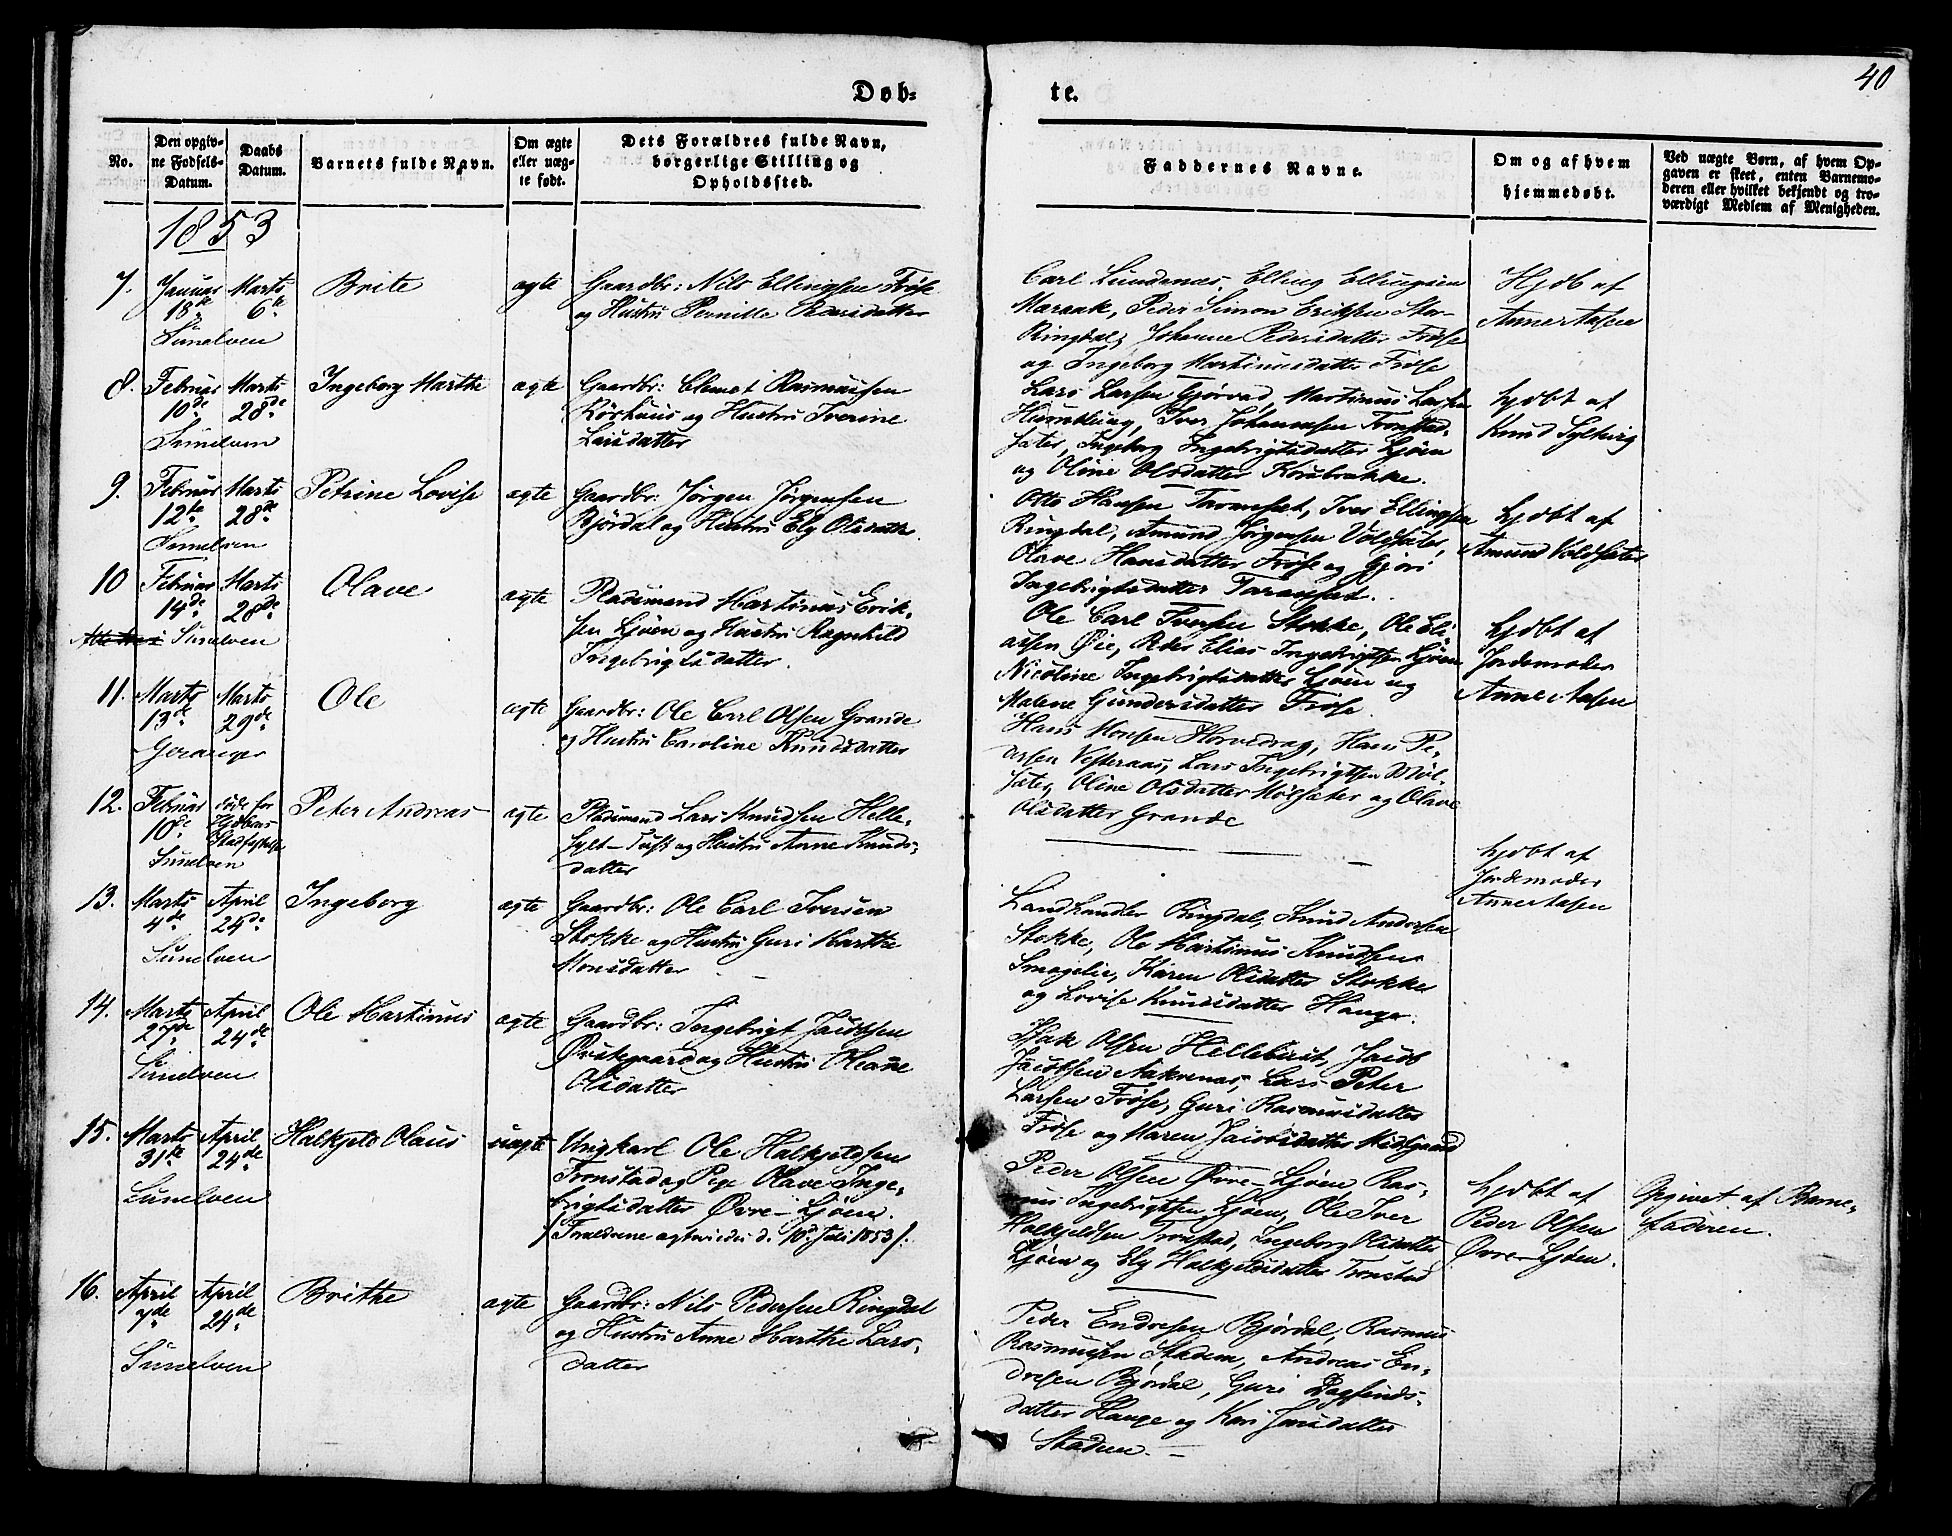 40
Døb-
te.
No.
Den opgiv-
ne Fødsels-
Datum.
Daabs
Datum.
Barnets fulde Navn.
Om ægte
eller uæg-
te født.
Dets Forældres fulde Navn,
borgerlige Stilling og
Opholdssted.
Faddernes Navne.
Om og af hvem
hjemmedøbt.
Ved uægte Børn, af hvem Op-
gaven er skeet, enten Barnemo-
deren eller hvilket bekjendt og tro-
værdigt Medlem af Menigheden.
1853
7.
Januar
18de
Sunelven
Marts
6te
Brite
ægte
Gaardbr: Nils Ellingsen Frøse
og Hustru Pernille Larsdatter
Carl Lundenæs, Elling Ellingsen
Maraak, Peder Simon Eriksen Stor-
Ringdal, Johanne Pedersdatter Frøse
og Ingeborg Martinusdatter Frøse
Hjdb af
Anne Aasen
8.
Februar
10de
Sunelven
Marts
28de
Ingeborg Marthe
ægte
Gaardbr: Clemet Rasmussen
Kørhuus og Hustru Iverine
Larsdatter
Lars Larsen Gjørvad, Martinus Larsen
Humblung, Iver Johannesen Tronstad-
sæter, Ingeborg Ingebrigtsdatter Ljøen
og Oline Olsdatter Kornbrække.
hjdbt af
Knud Syltevig
9.
Februar
12te
Sunelven
Marts
28de
Petrine Lovise
ægte
Gaardbr: Jørgen Jørgensen
Bjørdal og Hustru Ely Olsdatter.
Otto Hansen Taranset, Iver Ellingsen
Ringdal, Amund Jørgensen Voldsæter,
Olave Hansdatter Frøse og Gjøri
Ingebrigtsdatter Taranset.
hjdbt af
Amund Voldsæter
10
Februar
14de
Sunelven
Marts
28de
Olave
ægte
Pladsmand Martinus Erik-
sen Ljøen og Hustru Ragnhild
Ingebrigtsdatter.
Ole Carl Iversen Stokke, Ole Eli-
assen Øie, Peder Elias Ingebrigtsen Ljøen
Nicoline Ingebrigtsdatter Ljøen og
Malene Gundersdatter Frøse
hjdbt af
Jordemoder
Anne Aasen
11.
Marts
13de
Geranger
Marts
29de
Ole
ægte
Gaardbr: Ole Carl Olsen Grande
og Hustru Caroline Knudsdatter
Hans Monsen Horvedrag, Hans Pe-
dersen Vesteraas, Lars Ingebrigtsen Møl-
sæter, Oline Olsdatter Mølsæter og Olave
Olsdatter Grande
12.
Februar
10de
Sunelven
døde før
Hjdbens
Stadfæstelse
Peter Andreas
ægte
Pladsmand Lars Knudsen Helle-
sylt-Tuft og Hustru Anne Knuds-
datter
hjdbt af
Jordemoder
Anne Aasen
13.
Marts
4de
Sunelven
April
24de
Ingeborg
ægte
Gaardbr: Ole Carl Iversen
Stokke og Hustru Guri Marthe
Monsdatter
Landhandler Ringdal, Knud Andersen
Stokke, Ole Martinus Knudsen
Smogelie, Karen Olsdatter Stokke
og Lovise Knudsdatter Hauge.
14.
Marts
27de
Sunelven
April
24de
Ole Martinus
ægte
Gaardbr: Ingebrigt Jacobsen
Østegaard og Hustru Oleane
Olsdatter
Isak Olsen Hellebust, Jacob
Jacobsen Aakrenæs, Lars Peter
Larsen Frøse, Guri Rasmusdatter
Frøse og Maren Jacobsdatter Midtgaard
15.
Marts
31te
Sunelven
April
24de
Halkjeld Olaus
uægte
Ungkarl Ole Halkjeldsen
Tronstad og Pige Olave Inge-
brigtsdatter Øvre-Ljøen.
/: Forældrene ægteviedes d. 10de Juli 1853 /:
Peder Olsen Øvre-Ljøen, Ras-
mus Ingebrigtsen Ljøen, Ole Iver
Halkjeldsen Tronstad, Ingeborg Olsdatter
Ljøen og Ely Halkjeldsdatter Tronstad
hjdbt af
Peder Olsen
Øvre-Ljøen.
Opgivet af Barne-
faderen.
16.
April
7de
Sunelven
April
24de
Brithe
ægte
Gaardbr: Nils Pedersen Ringdal
og Hustru Anne Marthe Lars-
datter
Peder Endresen Bjørdal, Rasmus
Rasmussen Stadem, Andreas En-
dresen Bjørdal, Guri Dagfinds-
datter Hauge og Kari Larsdatter
Stadem